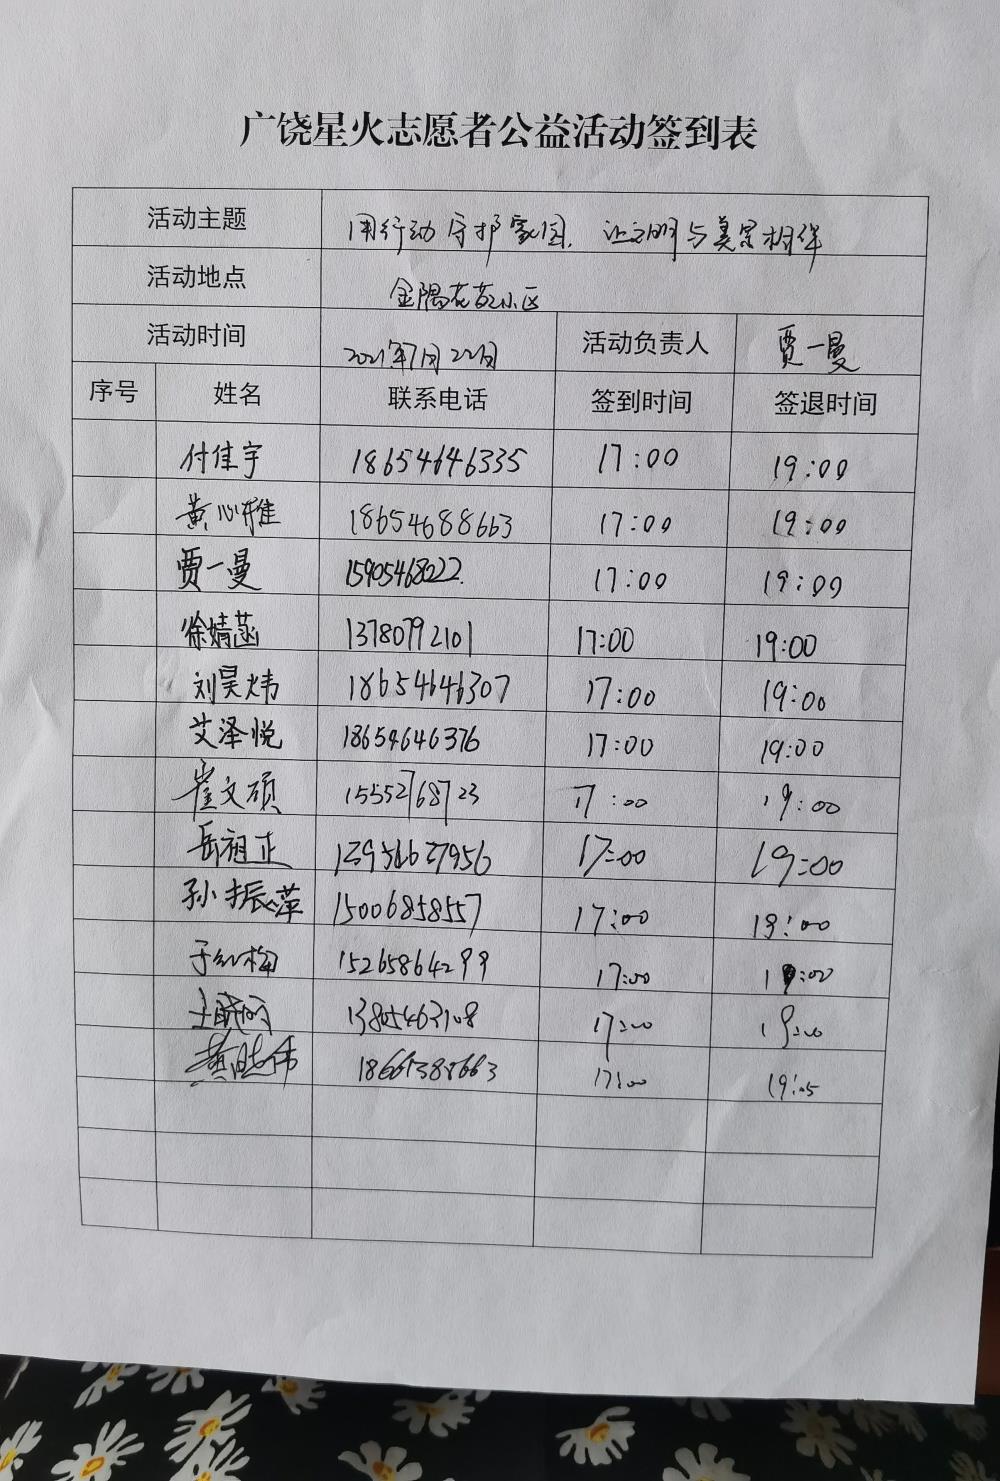 广饶星火志愿者公益活动签到表
活动主题 用行动守护家园，让文明与美景相伴
活动地点 金隅花苑小区
活动时间 2021年7月22日 活动负责人 贾一曼
序号 姓名 联系电话 签到时间 签退时间
付佳宇 18654646335 17:00 19:00
黄心雅 18654688663 17:00 19:00
贾一曼 15905468222 17:00 19:00
徐婧菡 13780792101 17:00 19:00
刘昊炜 18654646307 17:00 19:00
艾泽悦 18654646376 17:00 19:00
崔文硕 15552768723 17:00 19:00
岳祖正 17:00 19:00
孙振萍 15006858557 17:00 19:00
于红梅 15265864299 17:00 19:00
王晓丽 13805463108 17:00 19:00
黄晓伟 17:00 19:05